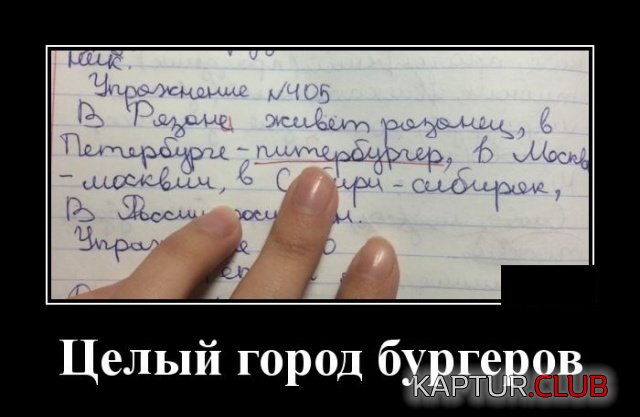 ник.
Упражнение №405
В Рязане живёт рязанец, в
Петербурге - питербургер, в Москв
- москвич, в Сибири - сибиряк,
В России
Целый город бургеров
KAPTUR.CLUB